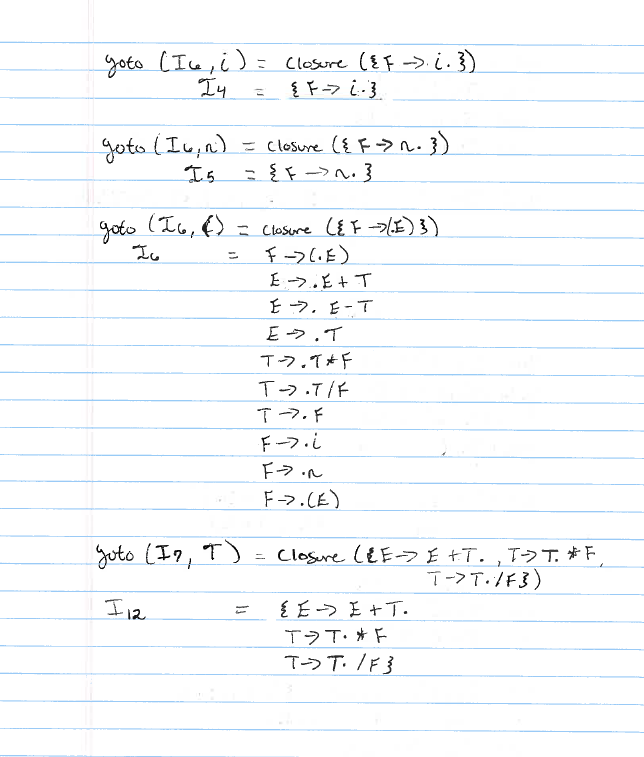 goto (I6, i) = closure ({F → i.})
I4 = {F → i.}
goto (I6, n) = closure ({F → n.})
I5 = {F → n.}
goto (I6, () = closure ({F → (.E)})
I6 = F → (.E)
E → .E + T
E → . E - T
E → .T
T → .T * F
T → .T / F
T → .F
F → .i
F → .n
F → .(E)
goto (I7, T) = closure ({E → E + T. , T → T. * F,
T → T. / F})
I12 = {E → E + T.
T → T. * F
T → T. / F}